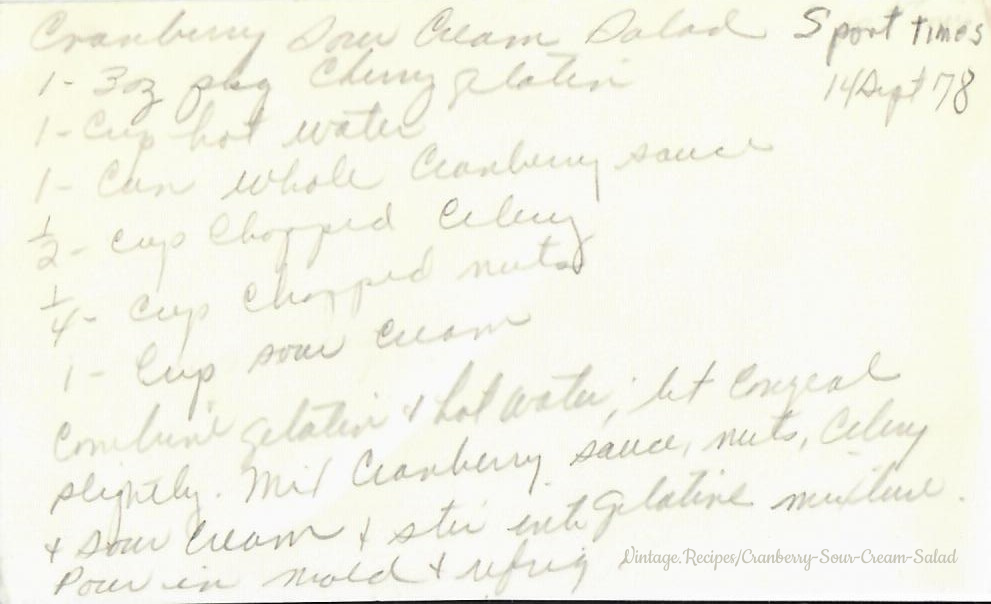 Cranberry Sour Cream Salad Sport times
14 Sept 78
1- 3oz pkg Cherry gelatin
1- Cup hot water
1- Can whole Cranberry sauce
1/2- cup Chopped Celery
1/4- Cup Chopped nuts
1- Cup sour Cream
Combine gelatin & hot water; let Congeal
slightly. Mix Cranberry sauce, nuts, Celery
& sour Cream & stir into gelatine mixture.
Pour in mold & refrig
Vintage.Recipes/Cranberry-Sour-Cream-Salad